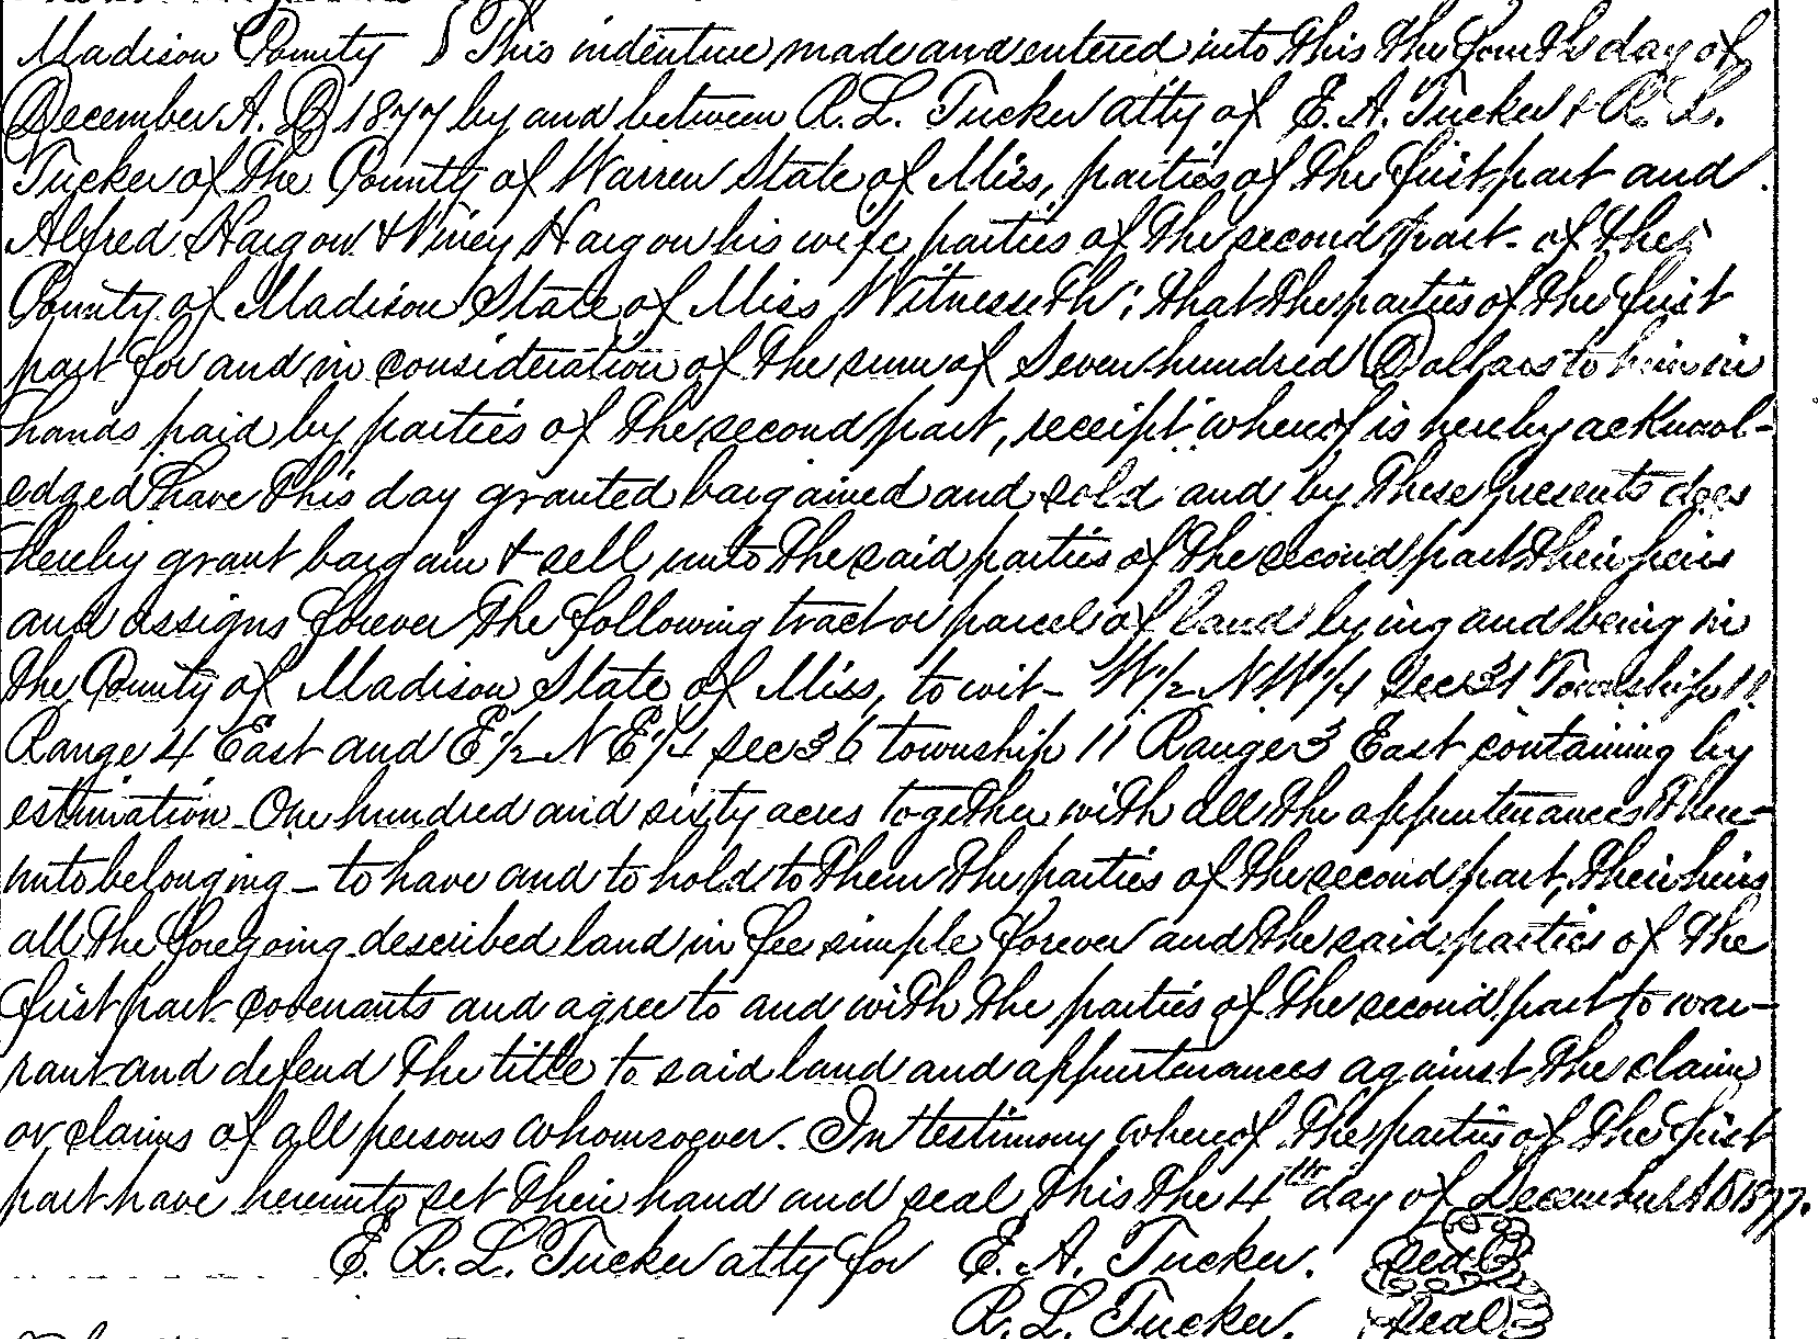 Madison County } This indenture made and entered into this the fourth day of
December A. D 1877 by and between R. L. Tucker atty of E. A. Tucker & R. L.
Tucker of the County of Warren State of Miss, parties of the first part and
Alfred Hargon & Winey Hargon his wife parties of the second part - of the
County of Madison State of Miss Witnesseth; that the parties of the first
part for and in consideration of the sum of Seven hundred Dollars to him in
hands paid by parties of the second part, receipt whereof is hereby acknowl-
edged have this day granted bargained and sold and by these presents does
hereby grant bargain & sell unto the said parties of the second part their heirs
and assigns forever the following tract or parcel of land lying and being in
the County of Madison State of Miss, to wit - W 1/2 N.W 1/4 Sec 31 Township 11
Range 4 East and E 1/2 N E 1/4 Sec 36 township 11 Range 3 East containing by
estimation One hundred and sixty acres together with all the appurtenances there-
unto belonging - to have and to hold to them the parties of the second part, their heirs
all the foregoing described land in fee simple forever and the said parties of the
first part covenants and agree to and with the parties of the second part to war-
rant and defend the title to said land and appurtenances against the claim
or claims of all persons whomsoever. In testimony whereof the parties of the first
part have hereunto set their hand and seal this the 4th day of December A D 1877.
E. R. L. Tucker atty for E. A. Tucker. Seal
R. L. Tucker. Seal